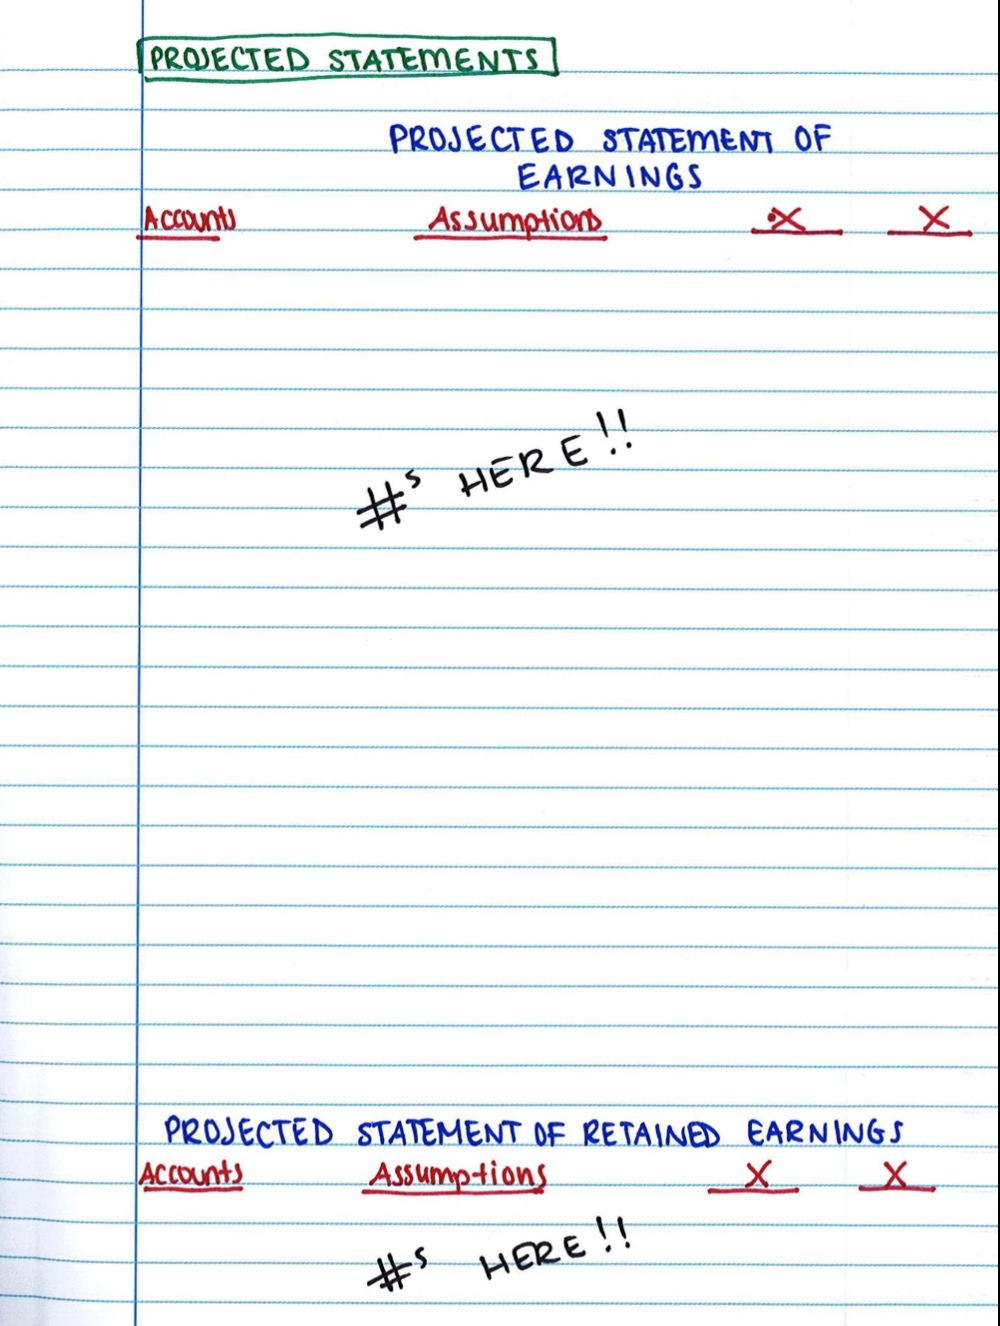 PROJECTED STATEMENTS
PROJECTED STATEMENT OF
EARNINGS
Accounts Assumptions X X
#s HERE!!
PROJECTED STATEMENT OF RETAINED EARNINGS
Accounts Assumptions X X
#s HERE!!